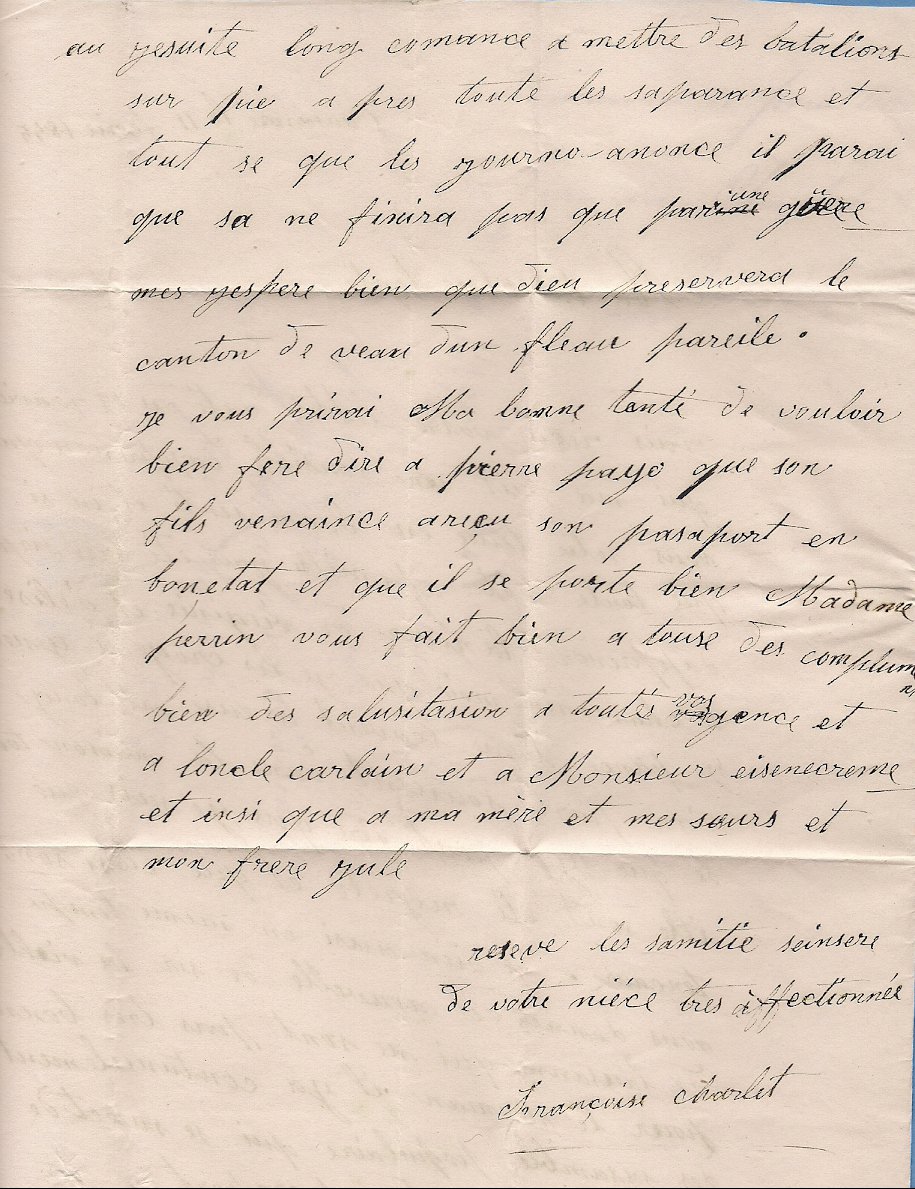 au yesuite long comance a mettre des batalions
sur pie a pres toute les saparance et
tout se que les yourno anonce il parai
que sa ne finira pas que par une guere
mes yespere bien que dieu preservera le
canton de veau dun fleau pareile.
ye vous prirai Ma bonne tenté de vouloir
bien fere dire a pierre payo que son
fils venaince areçu son pasaport en
bonetat et que il se porte bien Madame
perrin vous fait bien a touse des complum
bien des salusitasion a toutés vos gence et
a loncle carlain et a Monsieur eisenecreme
et insi que a ma mère et mes sœurs et
mon frere yule
reseve les samitie seinsere
de votre niéce tres àffectionnée
Françoise Charlet